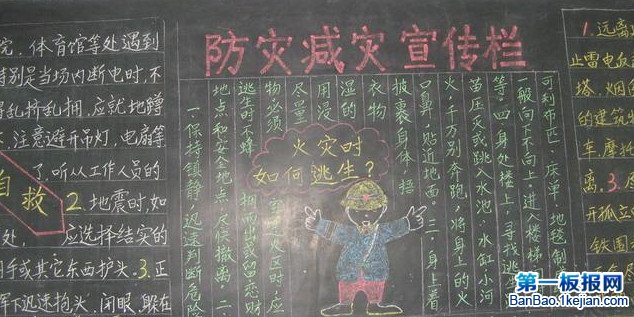 院，体育馆等处遇到
特别是当场内断电时，不
乱挤乱拥，应就地蹲
注意避开吊灯，电扇等
了，听从工作人员的
自救
2.地震时，如
处，应选择结实的
用手或其它东西护头。3.正
挥下迅速抱头、闭眼、躲在
防灾减灾宣传栏
一、保持镇静，迅速判断危险
地点和安全地点，尽快撤离。二、
逃生时不蜂拥而出或留恋财
物必须穿过火区时，应
尽量
用浸
湿的
衣物
披裹身体，捂
口鼻，贴近地面。三、身上着
火，千万别奔跑，将身上的
苗压灭或跳入水池，水缸，小河
等。四、身处楼上，寻找逃
一般向下不向上，进入楼梯
可利布匹，床单，地毯制
火灾时
如何逃生？
1.远离
止雷电
塔，烟囱
的建筑物
车，摩托
离。3.
开孤立
铁围
第一板报网
BanBao.1kejian.com